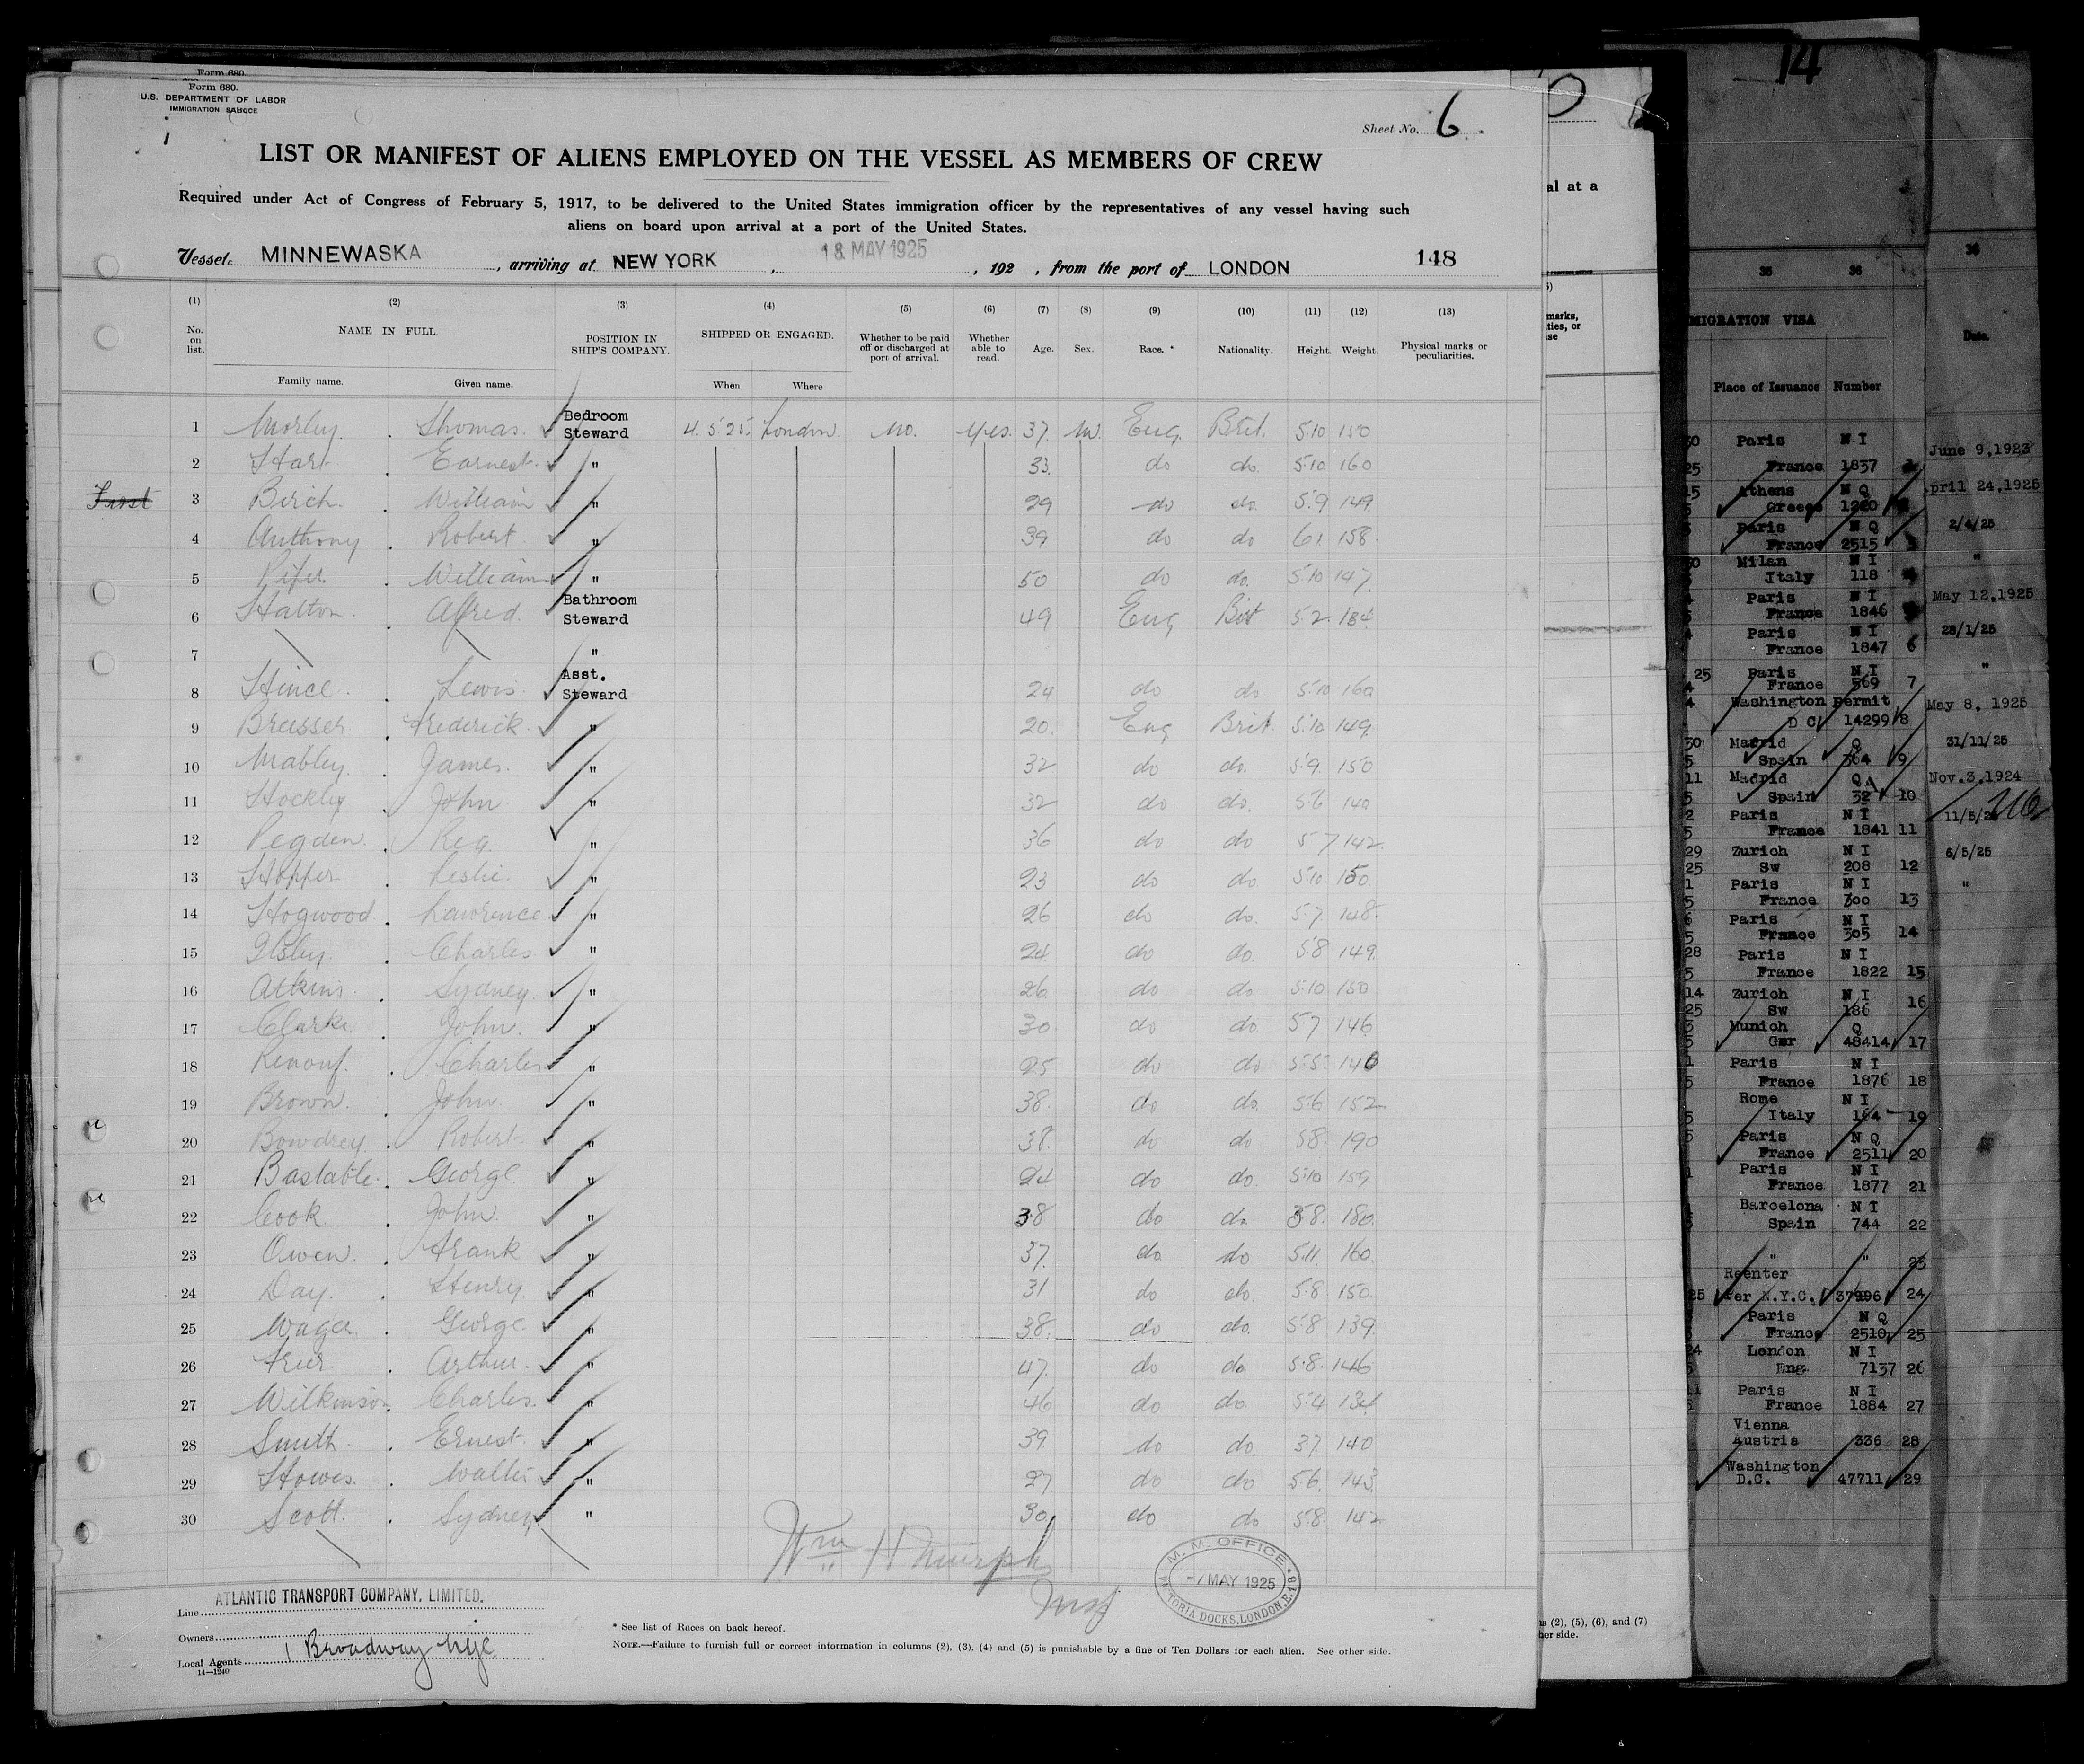 Form 680.
Form 680.
U.S. DEPARTMENT OF LABOR
IMMIGRATION
Sheet No. 6
LIST OR MANIFEST OF ALIENS EMPLOYED ON THE VESSEL AS MEMBERS OF CREW
Required under Act of Congress of February 5, 1917, to be delivered to the United States immigration officer by the representatives of any vessel having such
aliens on board upon arrival at a port of the United States.
Vessel MINNEWASKA, arriving at NEW YORK, 18 MAY 1925, 192 , from the port of LONDON 148
(1) (2) (3) (4) (5) (6) (7) (8) (9) (10) (11) (12) (13)
No. on list. NAME IN FULL. POSITION IN SHIP'S COMPANY. SHIPPED OR ENGAGED. Whether to be paid off or discharged at port of arrival. Whether able to read. Age. Sex. Race. * Nationality. Height. Weight. Physical marks or peculiarities.
Family name. Given name. When Where
1 Morley. Thomas. Bedroom Steward 4.5.25. London. No. Yes. 37 M. Eng. Brit. 5.10 150
2 Hart Earnest. " 33. do do. 5.10. 160
First
3 Birch. William " 29 do do. 5.9 149
4 Anthony Robert " 39 do do 6.1. 158
5 William " 50 do do. 5.10 147.
6 Halton. Alfred. Bathroom Steward 49 Eng Brit 5.2. 184
7 "
8 Hince. Lewis. Asst. Steward 24 do do 5.10 160
9 Frederick. " 20. Eng Brit 5.10 149
10 Mabley. James. " 32 do do. 5.9. 150
11 Hockley John. " 32 do do. 5.6 140
12 Pegden. Reg. " 36 do do 5 7 142.
13 Hopper Leslie. " 23 do do. 5.10 150.
14 Hogwood. Lawrence. " 26 do do. 5.7. 148.
15 Ilsley. Charles " 24 do do. 5.8 149.
16 Atkins. Sydney. " 26 do do 5.10 150
17 Clarke. John. " 30 do do. 5.7 146
18 Renouf. Charles " 25 do do 5.5. 140
19 Brown. John. " 38. do do. 5.6 152
20 Bowdrey. Robert. " 38. do do 5.8. 190
21 Bastable. George. " 24 do do. 5.10 159
22 Cook John. " 38 do do 5.8. 180.
23 Owen. Frank " 37. do do 5.11. 160.
24 Day. Henry. " 31 do do. 5.8 150.
25 Wager. George. " 38. do do. 5.8 139.
26 Arthur. " 47. do do 5.8. 146
27 Wilkinson. Charles. " 46 do do. 5.4 134
28 Smith. Ernest. " 39. do do 3.7. 140
29 Howes. Walter " 27 do do 5.6. 143.
30 Scott. Sydney " 30. do do 5.8 142
Wm H Murphy
M. M. OFFICE
-7 MAY 1925
VICTORIA DOCKS, LONDON, E.18
Line ATLANTIC TRANSPORT COMPANY, LIMITED.
Owners
Local Agents 1 Broadway NYC
14-1240
* See list of Races on back hereof.
NOTE.—Failure to furnish full or correct information in columns (2), (3), (4) and (5) is punishable by a fine of Ten Dollars for each alien. See other side.
al at a
marks,
ties, or
(2), (5), (6), and (7)
her side.
14
35 36 36
MIGRATION VISA
Date.
Place of Issuance Number
Paris N I June 9, 1923
France 1837
Athens N Q April 24, 1925
Greece
Paris N Q 2/4/25
France 2515
Milan N I "
Italy 118
Paris N I May 12, 1925
France 1846
Paris N I 28/1/25
France 1847 6
Paris N I "
France 569 7
Washington permit May 8, 1925
D C 14299 8
Madrid Q 31/11/25
Spain 364 9
Madrid Q Nov. 3, 1924
Spain 32 10
Paris N I
France 1841 11
Zurich N I 6/5/25
Sw 208 12
Paris N I "
France 300 13
Paris N I
France 305 14
Paris N I
France 1822 15
Zurich N I
Sw 186 16
Munich Q
Ger 48414 17
Paris N I
France 1876 18
Rome N I
Italy 164 19
Paris N Q
France 2511 20
Paris N I
France 1877 21
Barcelona N I
Spain 744 22
" " 23
Reenter
Per N.Y.C. 37996 24
Paris N Q
France 2510 25
London N I
Eng. 7137 26
Paris N I
France 1884 27
Vienna
Austria 336 28
Washington
D.C. 47711 29